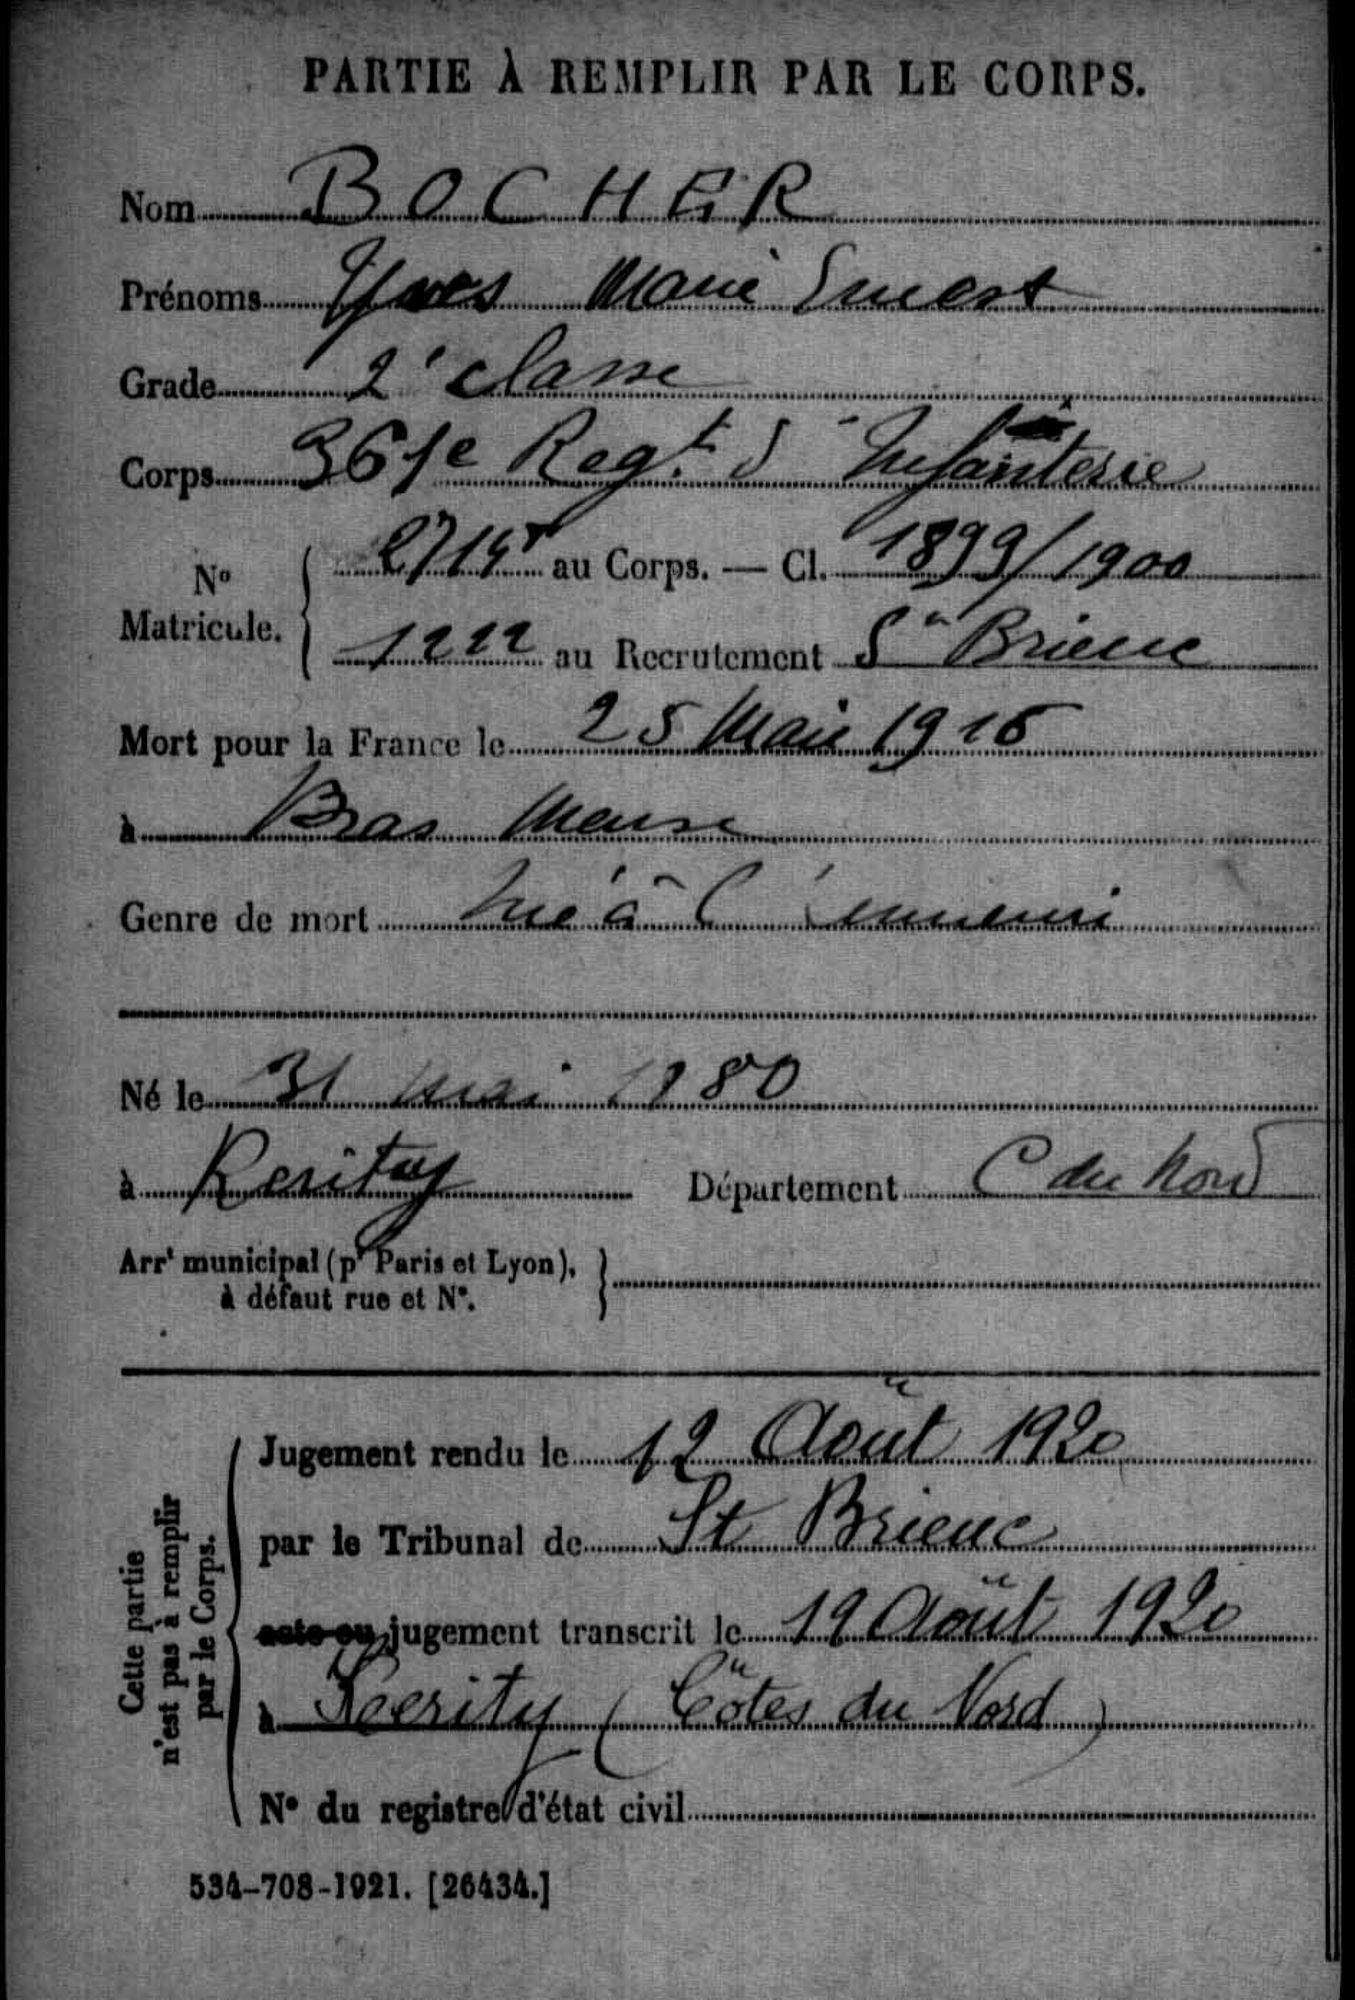 PARTIE À REMPLIR PAR LE CORPS.
Nom BOCHER
Prénoms Yves Marie Ernest
Grade 2e classe
Corps 361e Regt. d'Infanterie
No Matricule. { au Corps. — Cl. 1899/1900
1222 au Recrutement St Brieuc
Mort pour la France le 25 1916
à Bras Meuse
Genre de mort tué à l'ennemi
Né le 31 mai 1880
à Kerity Département C du Nord
Arrt municipal (pr Paris et Lyon),
à défaut rue et N°.
Cette partie
n'est pas à remplir
par le Corps.
Jugement rendu le 12 Août 1920
par le Tribunal de St Brieuc
acte ou jugement transcrit le 19 Août 1920
à Kerity (Côtes du Nord)
N° du registre d'état civil
534-708-1921. [26434.]